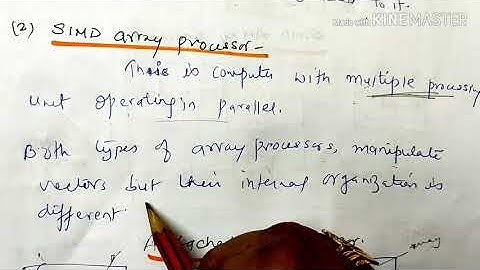 to it.
Made with KINEMASTER
(2) SIMD array processor -
This is computer with multiple processing
unit operating in parallel.
Both types of array processors, manipulate
vectors but their internal organization is
different.